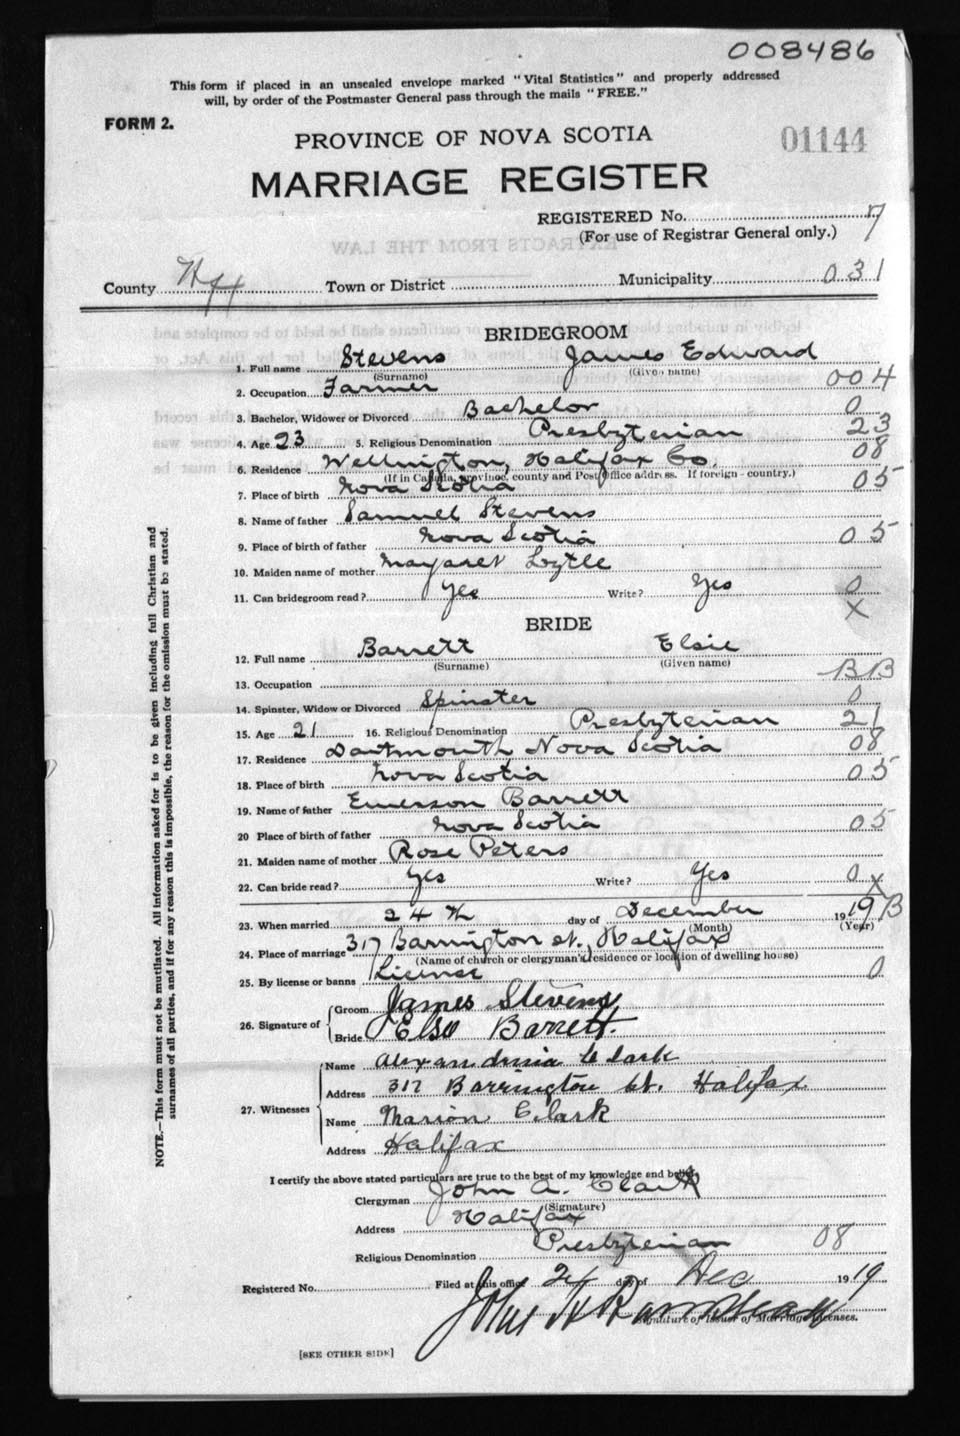 008486
This form if placed in an unsealed envelope marked "Vital Statistics" and properly addressed
will, by order of the Postmaster General pass through the mails "FREE."
FORM 2.
PROVINCE OF NOVA SCOTIA
01144
MARRIAGE REGISTER
REGISTERED No. 7
(For use of Registrar General only.)
EXTRACTS FROM THE LAW
County Hfx Town or District Municipality 031
BRIDEGROOM
1. Full name Stevens James Edward
(Surname) (Given name)
2. Occupation Farmer 004
3. Bachelor, Widower or Divorced Bachelor 0
4. Age 23 5. Religious Denomination Presbyterian 23
6. Residence Wellington, Halifax Co. 08
(If in Canada, province, county and Post Office address. If foreign - country.)
7. Place of birth Nova Scotia 05
8. Name of father Samuel Stevens
9. Place of birth of father Nova Scotia 05
10. Maiden name of mother Margaret Lytle
11. Can bridegroom read? Yes Write? Yes 0
X
BRIDE
12. Full name Barrett Elsie
(Surname) (Given name)
13. Occupation BB
14. Spinster, Widow or Divorced Spinster 0
15. Age 21 16. Religious Denomination Presbyterian 21
17. Residence Dartmouth Nova Scotia 08
18. Place of birth Nova Scotia 05
19. Name of father Emerson Barrett
20 Place of birth of father Nova Scotia 05
21. Maiden name of mother Rose Peters
22. Can bride read? Yes Write? Yes 0 X
23. When married 24th day of December 1919 B
(Month) (Year)
24. Place of marriage 317 Barrington st., Halifax
(Name of church or clergyman's residence or location of dwelling house)
25. By license or banns License 0
26. Signature of Groom James Stevens
Bride Elsie Barrett.
27. Witnesses Name Alexandrina Clark
Address 317 Barrington St. Halifax
Name Marion Clark
Address Halifax
I certify the above stated particulars are true to the best of my knowledge and belief.
Clergyman John A. Clark
(Signature)
Address Halifax
Religious Denomination Presbyterian 08
Registered No. Filed at this office 24 day of Dec 1919
John
Signature of Issuer of Marriage Licenses.
[SEE OTHER SIDE]
NOTE.—This form must not be mutilated. All information asked for is to be given including full Christian and
surnames of all parties, and if for any reason this is impossible, the reason for the omission must be stated.